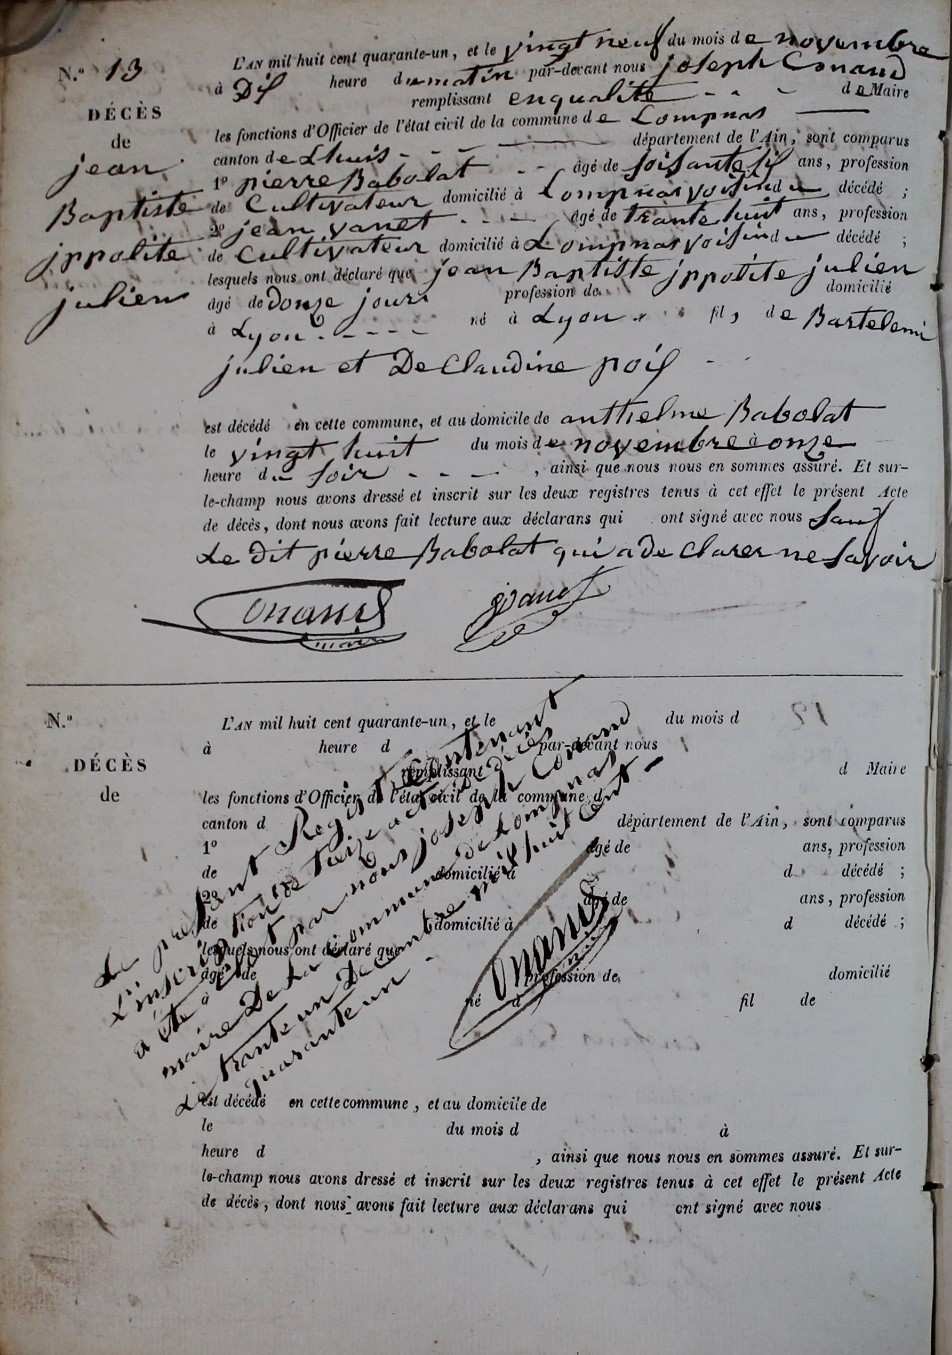 N.º 13
DÉCÈS
de
jean
Baptiste
jppolite
julien
L'AN mil huit cent quarante-un, et le vingt neuf du mois de novembre
à Dif heure du matin par-devant nous joseph Conand
remplissant enqualité - - - de Maire
les fonctions d'Officier de l'état civil de la commune de Lompnas
canton de Lhuis - - - département de l'Ain, sont comparus
1º pierre Babolat - - âgé de soisante sif ans, profession
de Cultivateur domicilié à Lompnas voisin du décédé ;
2º jean vanet - - - - âgé de trante huit ans, profession
de Cultivateur domicilié à Lompnas voisin du décédé ;
lesquels nous ont déclaré que jean Baptiste jppolite julien
âgé de donze jours profession de domicilié
à Lyon - - - - né à Lyon - fils, de Bartelemi
julien et De Claudine poif - -
est décédé en cette commune, et au domicile de anthelme Babolat
le vingt huit du mois de novembre à onze
heure du soir - - - - , ainsi que nous nous en sommes assuré. Et sur-
le-champ nous avons dressé et inscrit sur les deux registres tenus à cet effet le présent Acte
de décès, dont nous avons fait lecture aux déclarans qui ont signé avec nous sauf
Le dit pierre Babolat qui a de clarer ne savoir
Conand
maire
jvanet
N.º
DÉCÈS
de
L'AN mil huit cent quarante-un, et le du mois d
à heure d par-devant nous
remplissant d Maire
les fonctions d'Officier de l'état civil de la commune d
canton d département de l'Ain, sont comparus
1º âgé de ans, profession
de domicilié à d décédé ;
2º âgé de ans, profession
de domicilié à d décédé ;
lesquels nous ont déclaré que
âgé de profession de domicilié
à né à fil de
est décédé en cette commune, et au domicile de
le du mois d à
heure d , ainsi que nous nous en sommes assuré. Et sur-
le-champ nous avons dressé et inscrit sur les deux registres tenus à cet effet le présent Acte
de décès, dont nous avons fait lecture aux déclarans qui ont signé avec nous
Le present Registre Contenant
L'inscription de treize actes de décès
a été par nous joseph Conand
maire De La commune de Lompnas
Le trante un Decembre mil huit cent -
quarante un -
Conand
maire